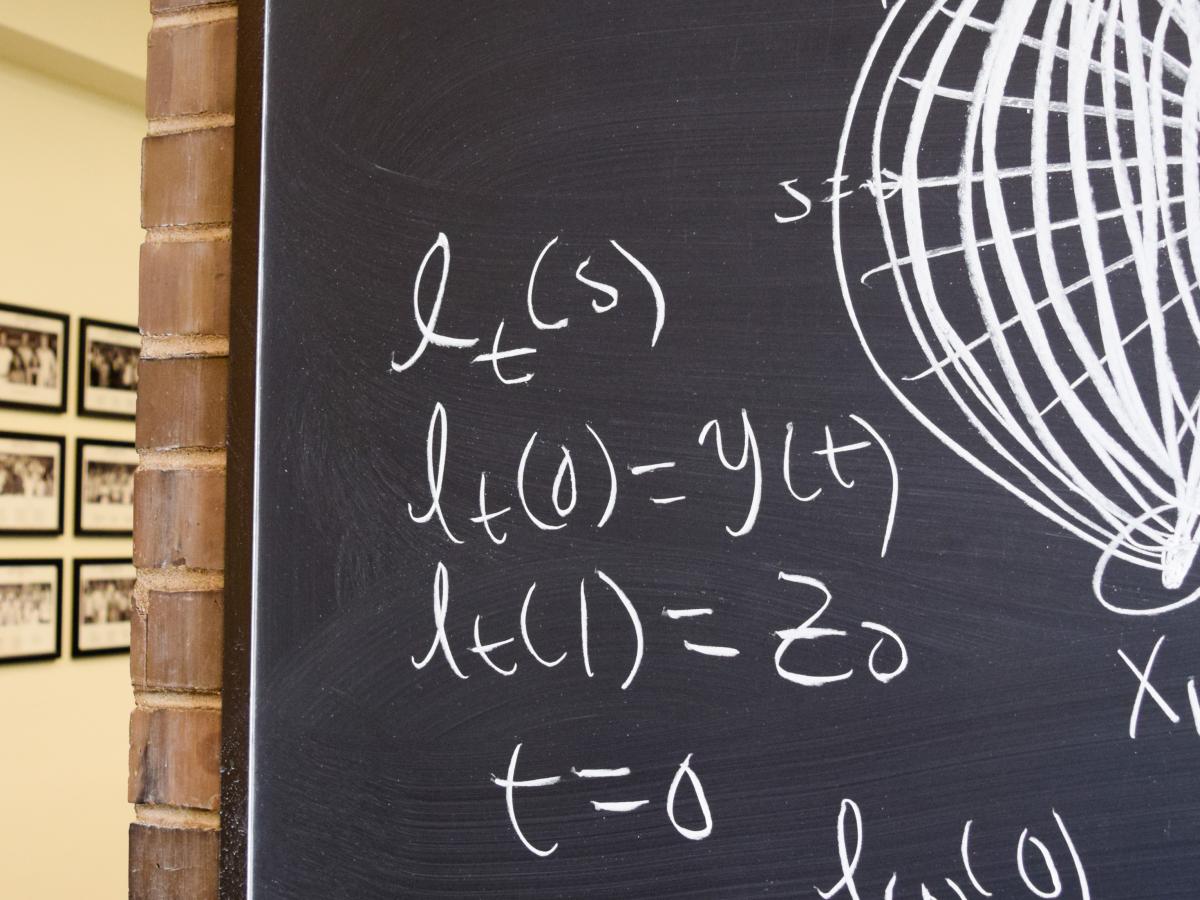 s=
l_t(s)
l_t(0)=y(t)
l_t(1)=z_0
x
t=0
(0)